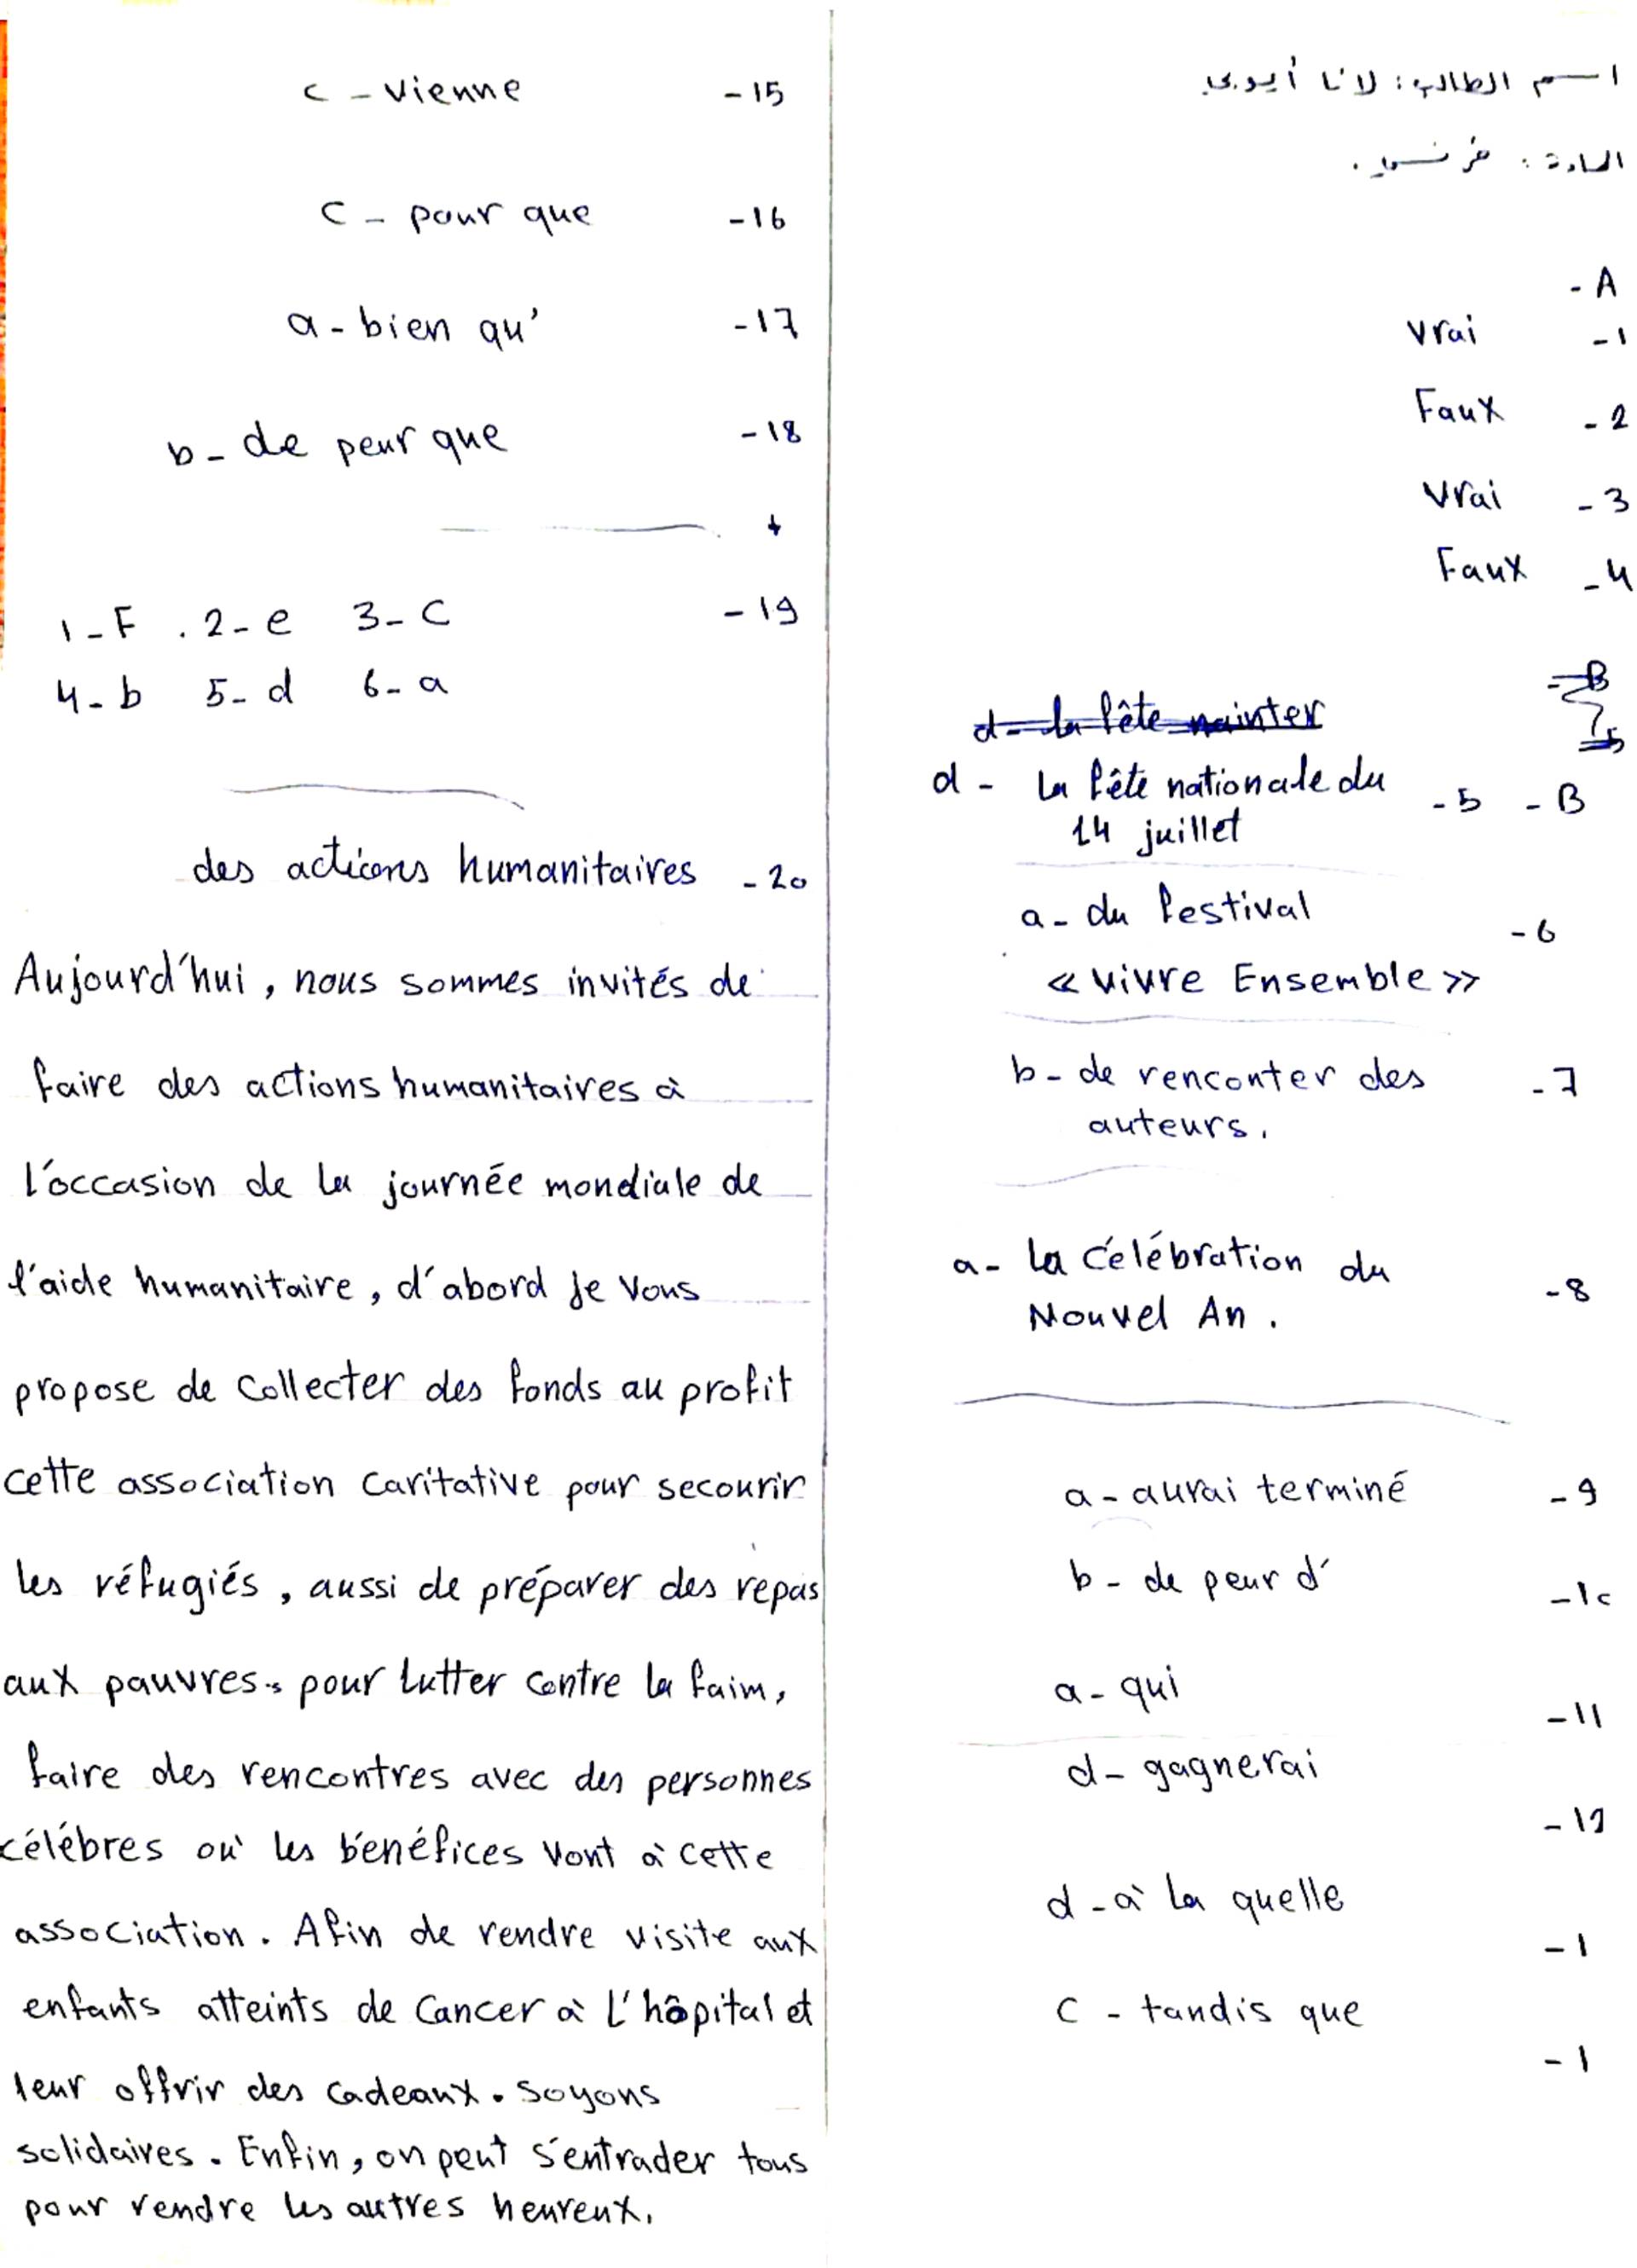 اسم الطالب: لانا أيوبي
المادة: فرنسي.
- A
vrai -1
Faux -2
vrai -3
Faux -4
d- la fête
- B
d- la fête nationale du -5 - B
14 juillet
a- du festival -6
« vivre Ensemble »
b- de renconter des -7
auteurs.
a- la célébration du -8
Nouvel An.
a- aurai terminé -9
b- de peur d' -10
a- qui -11
d- gagnerai -12
d- à la quelle -1
c - tandis que -1
c - vienne -15
c - pour que -16
a- bien qu' -17
b- de peur que -18
1-F . 2-e 3-c -19
4-b 5-d 6-a
des actions humanitaires -20
Aujourd'hui, nous sommes invités de
faire des actions humanitaires à
l'occasion de la journée mondiale de
l'aide humanitaire, d'abord je vous
propose de collecter des fonds au profit
cette association caritative pour secourir
les réfugiés, aussi de préparer des repas
aux pauvres. pour lutter contre la faim,
faire des rencontres avec des personnes
célébres où les bénéfices vont à cette
association. Afin de rendre visite aux
enfants atteints de cancer à L'hôpital et
leur offrir des cadeaux. soyons
solidaires. Enfin, on peut s'entrader tous
pour rendre les autres heureux.